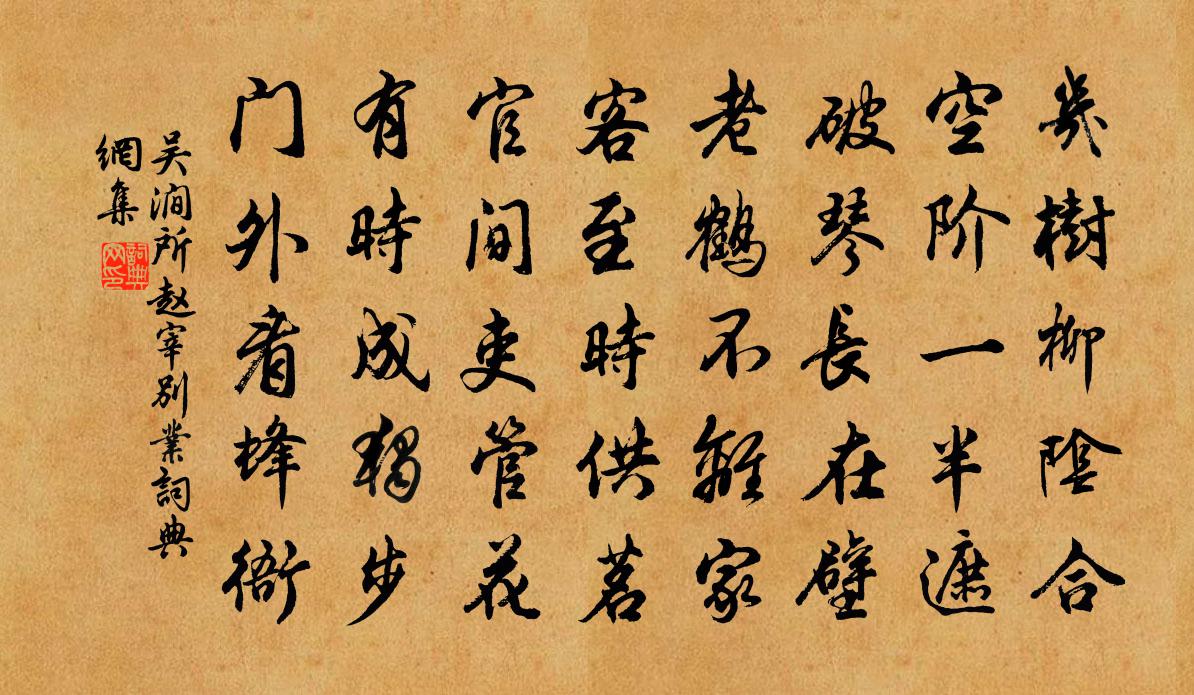 幾樹柳陰合
空阶一半遮
破琴長在壁
老鶴不離家
客至時供茗
官间吏管花
有時成獨步
门外看蜂衙
吴涧所赵宰别業詞典
網集
詞典网印